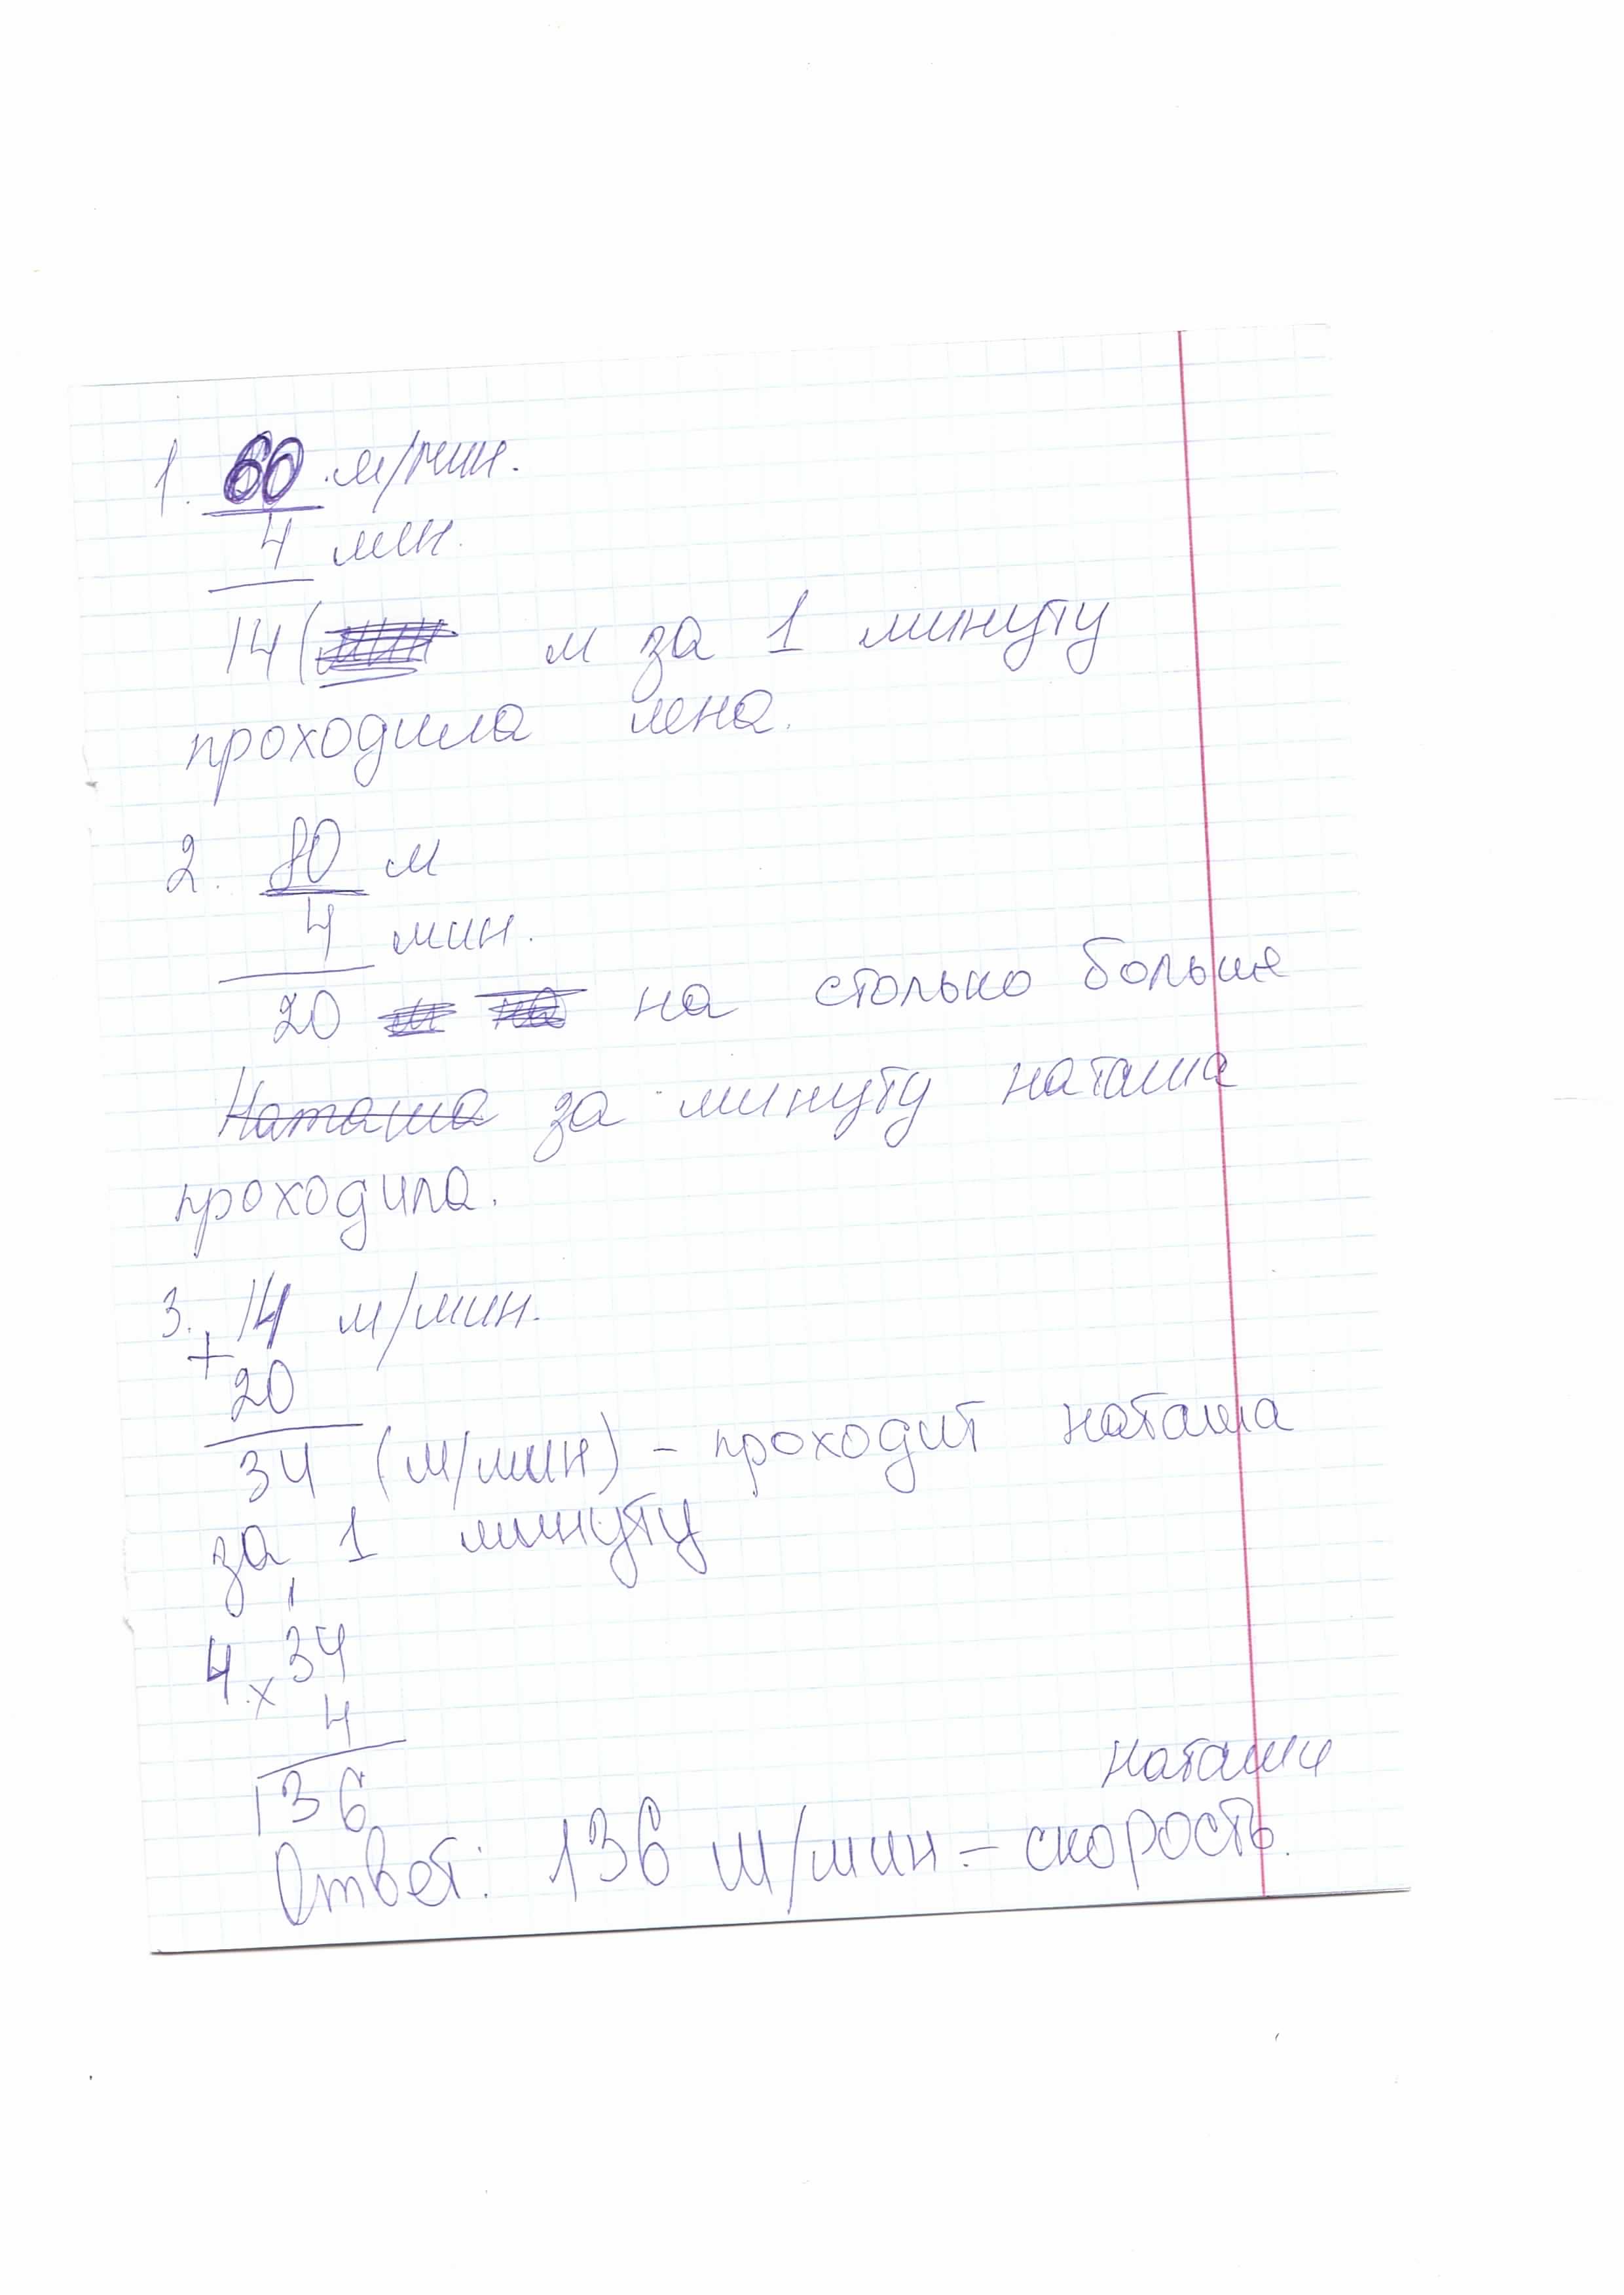 1. 60 м/мин.
4 мин.
14 ( м за 1 минуту
проходила лена.
2. 80 м
4 мин.
20 на столько больше
Наташа за минуту наташа
проходила.
3. 14 м/мин.
+
20
34 (м/мин) - проходит наташа
за 1 минуту
1
4. x 34
4
136
Наташи
Ответ: 136 м/мин - скорость.